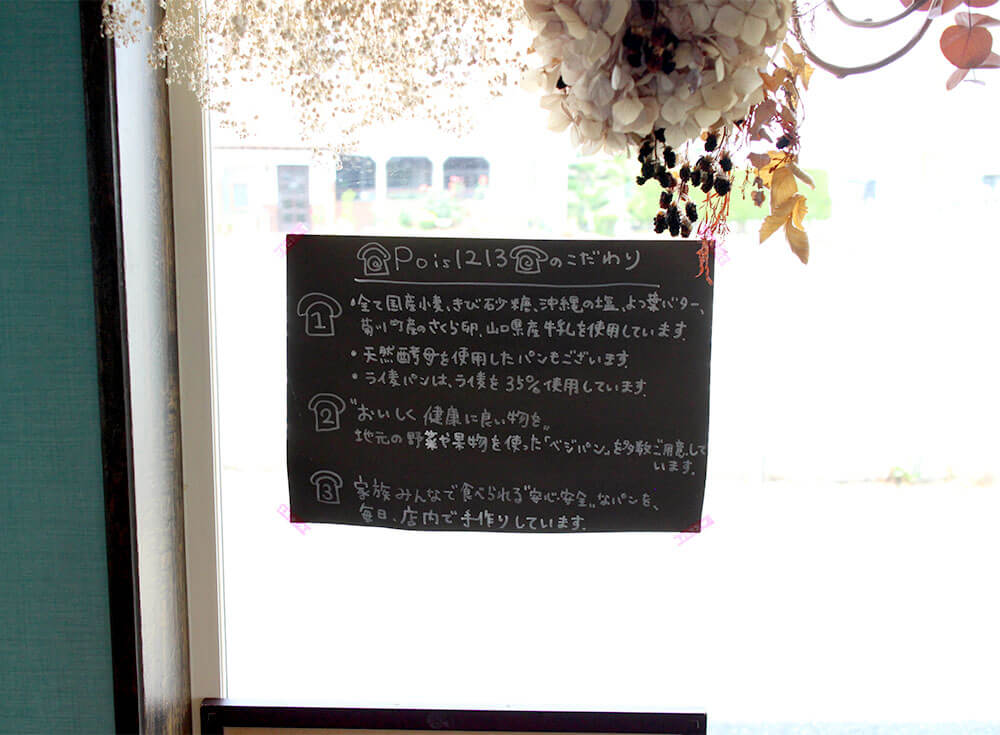 Pois1213のこだわり
1
・全て国産小麦、きび砂糖、沖縄の塩、よつ葉バター、
菊川町産のさくら卵、山口県産牛乳を使用しています。
・天然酵母を使用したパンもございます。
・ライ麦パンは、ライ麦を35%使用しています。
2
"おいしく健康に良い物を"
地元の野菜や果物を使った"ベジパン"を多数ご用意して
います。
3
家族みんなで食べられる"安心・安全"なパンを、
毎日、店内で手作りしています。